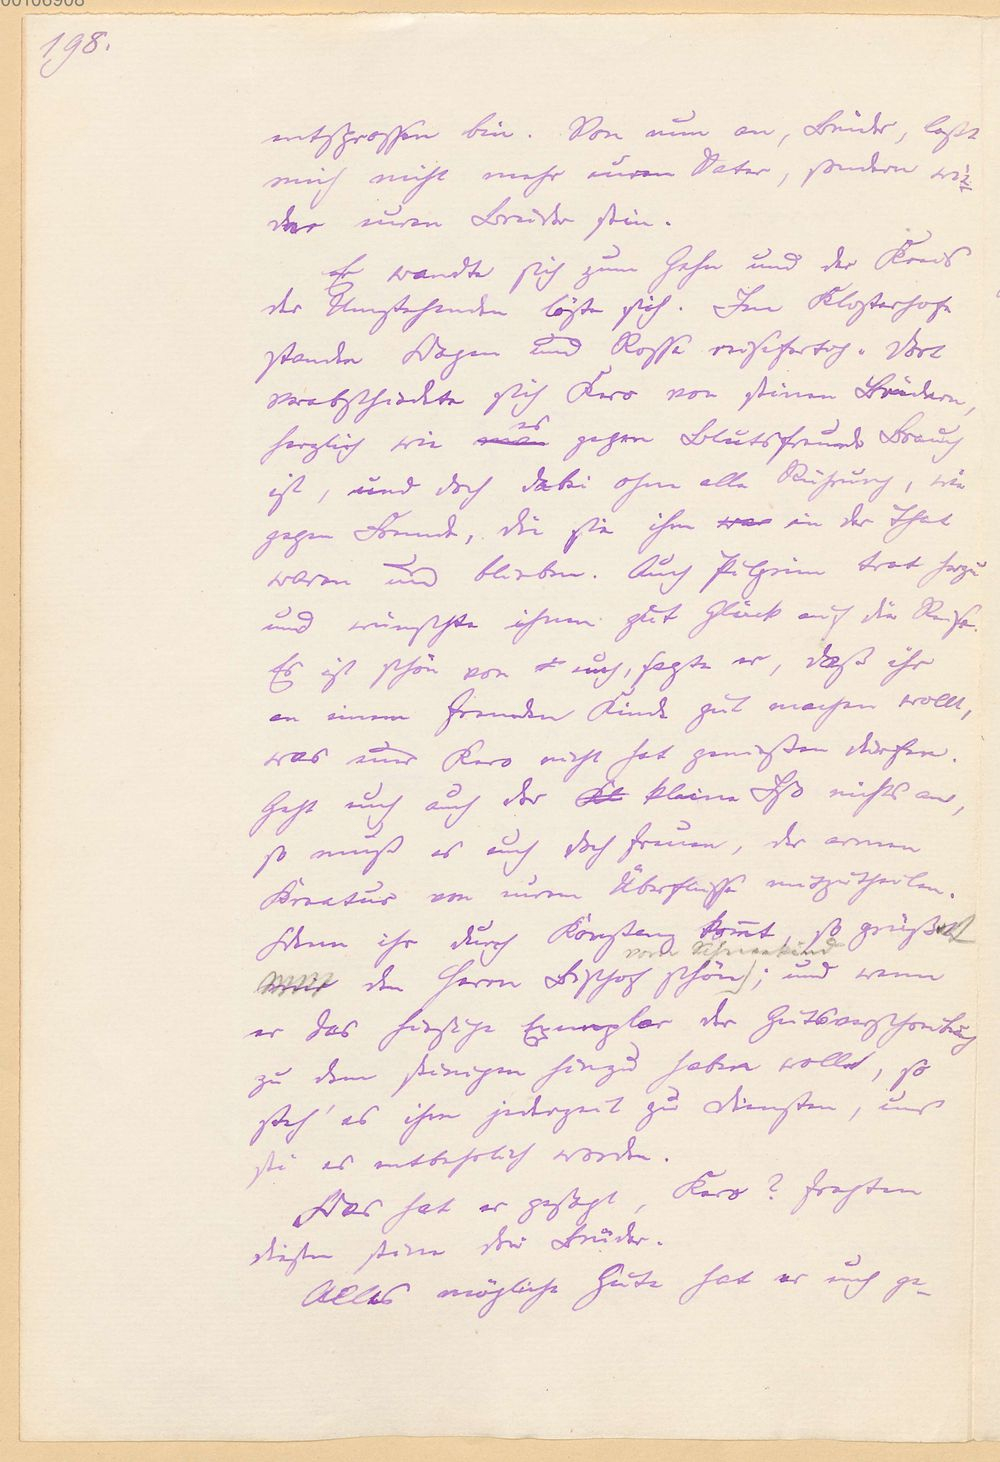 00106908
198.
entsprossen bin. Von nun an, Brüder, laßt
mich nicht mehr euren Vater, sondern wie-
der euren Bruder sein.
Er wandte sich zum Gehn und der Kreis
der Umstehenden löste sich. Im Klosterhofe
standen Wagen und Rosse reisefertig. Dort
verabschiedete sich Kero von seinen Brüdern,
herzlich wie es gegen Blutsfreunde Brauch
ist, und doch dabei ohne alle Rührung, wie
gegen Fremde, die sie ihm in der That
waren und blieben. Auch Pilgrim trat herzu
und wünschte ihnen gut Glück auf die Reise.
Es ist schön von euch, sagte er, daß ihr
an einem fremden Kinde gut machen wollt,
was euer Kero nicht hat genießen dürfen.
Geht euch auch der kleine Iso nichts an,
so muß es euch doch freuen, der armen
Kreatur von eurem Überflusse mitzutheilen.
Wenn ihr durch Konstanz kommt, so grüßet
den Herrn Bischof schön vom Schneekind; und wenn
er das hiesige Exemplar der Gutsverschreibung
zu dem seinigen hinzu haben wollte, so
steh' es ihm jederzeit zu Diensten, uns
sei es entbehrlich worden.
Was hat er gesagt, Kero? fragten
diesen seine drei Brüder.
Alles mögliche Gute hat er euch ge-